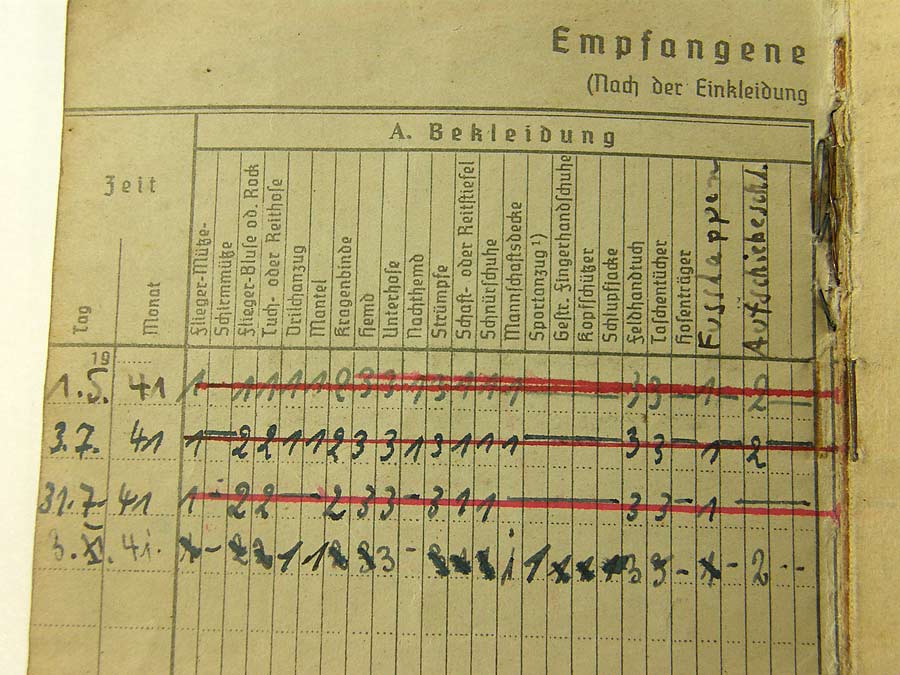 Empfangene
(Nach der Einkleidung
A. Bekleidung
Zeit
Tag
Monat
Flieger-Mütze-
Schirmmütze
Flieger-Bluse od. Rock
Tuch- oder Reithose
Drilchanzug
Mantel
Kragenbinde
Hemd
Unterhose
Nachthemd
Strümpfe
Schaft- oder Reitstiefel
Schnürschuhe
Mannschaftsdecke
Sportanzug ¹)
Gestr. Fingerhandschuhe
Kopfschützer
Schlupfjacke
Feldhandtuch
Taschentücher
Hosenträger
Fusslappen
Aufschiebeschl.
19
1.5. 41 1 - 1 1 1 1 2 3 3 1 3 1 1 1 - 3 3 - 1 - 2 -
3.7. 41 1 - 2 2 1 1 2 3 3 1 3 1 1 1 - 3 3 - 1 - 2 -
31.7. 41 1 - 2 2 - 2 3 3 - 3 1 1 - 3 3 - 1 -
41. - 1 1 3 - 1 3 - - 2 - -